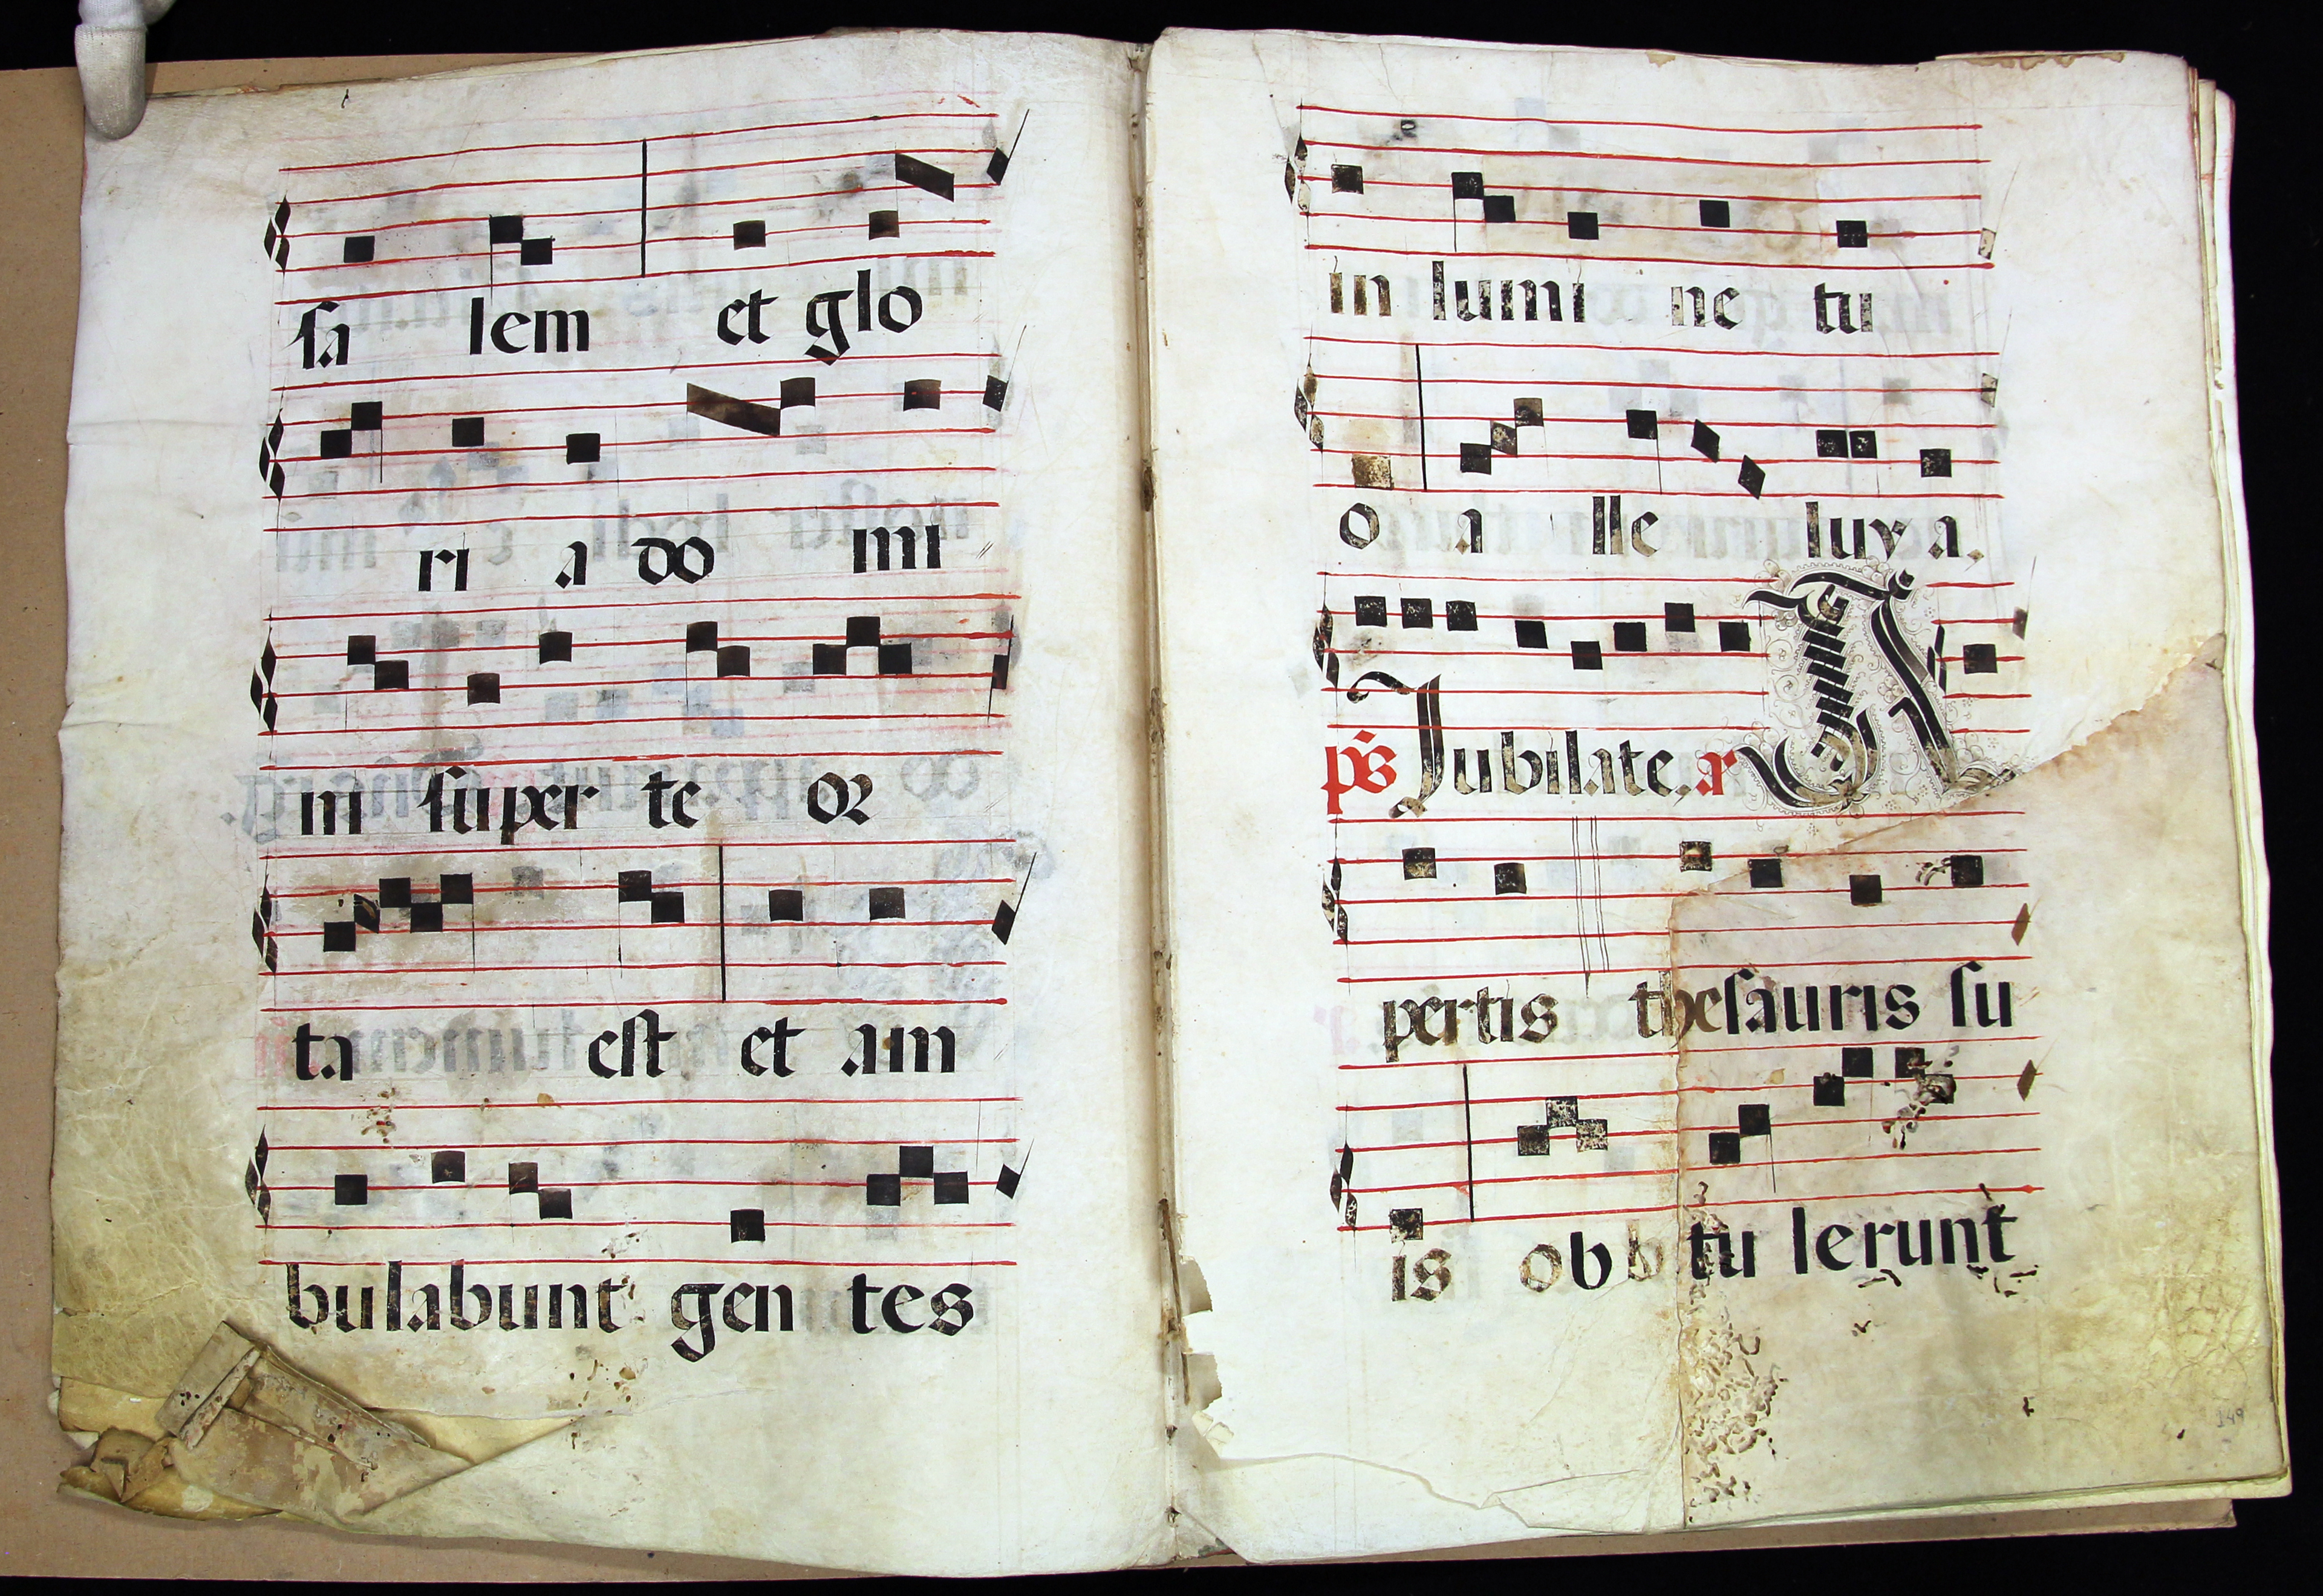 sa lem et glo
ri a do mi
ni super te or
ta est et am
bulabunt gen tes
in lumi ne tu
o a lle luya.
ps Jubilate, a A
pertis thesauris su
is ob tu lerunt
149